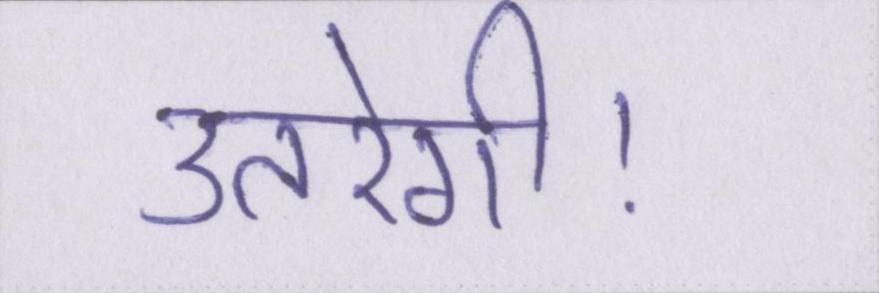 उतरेगी!